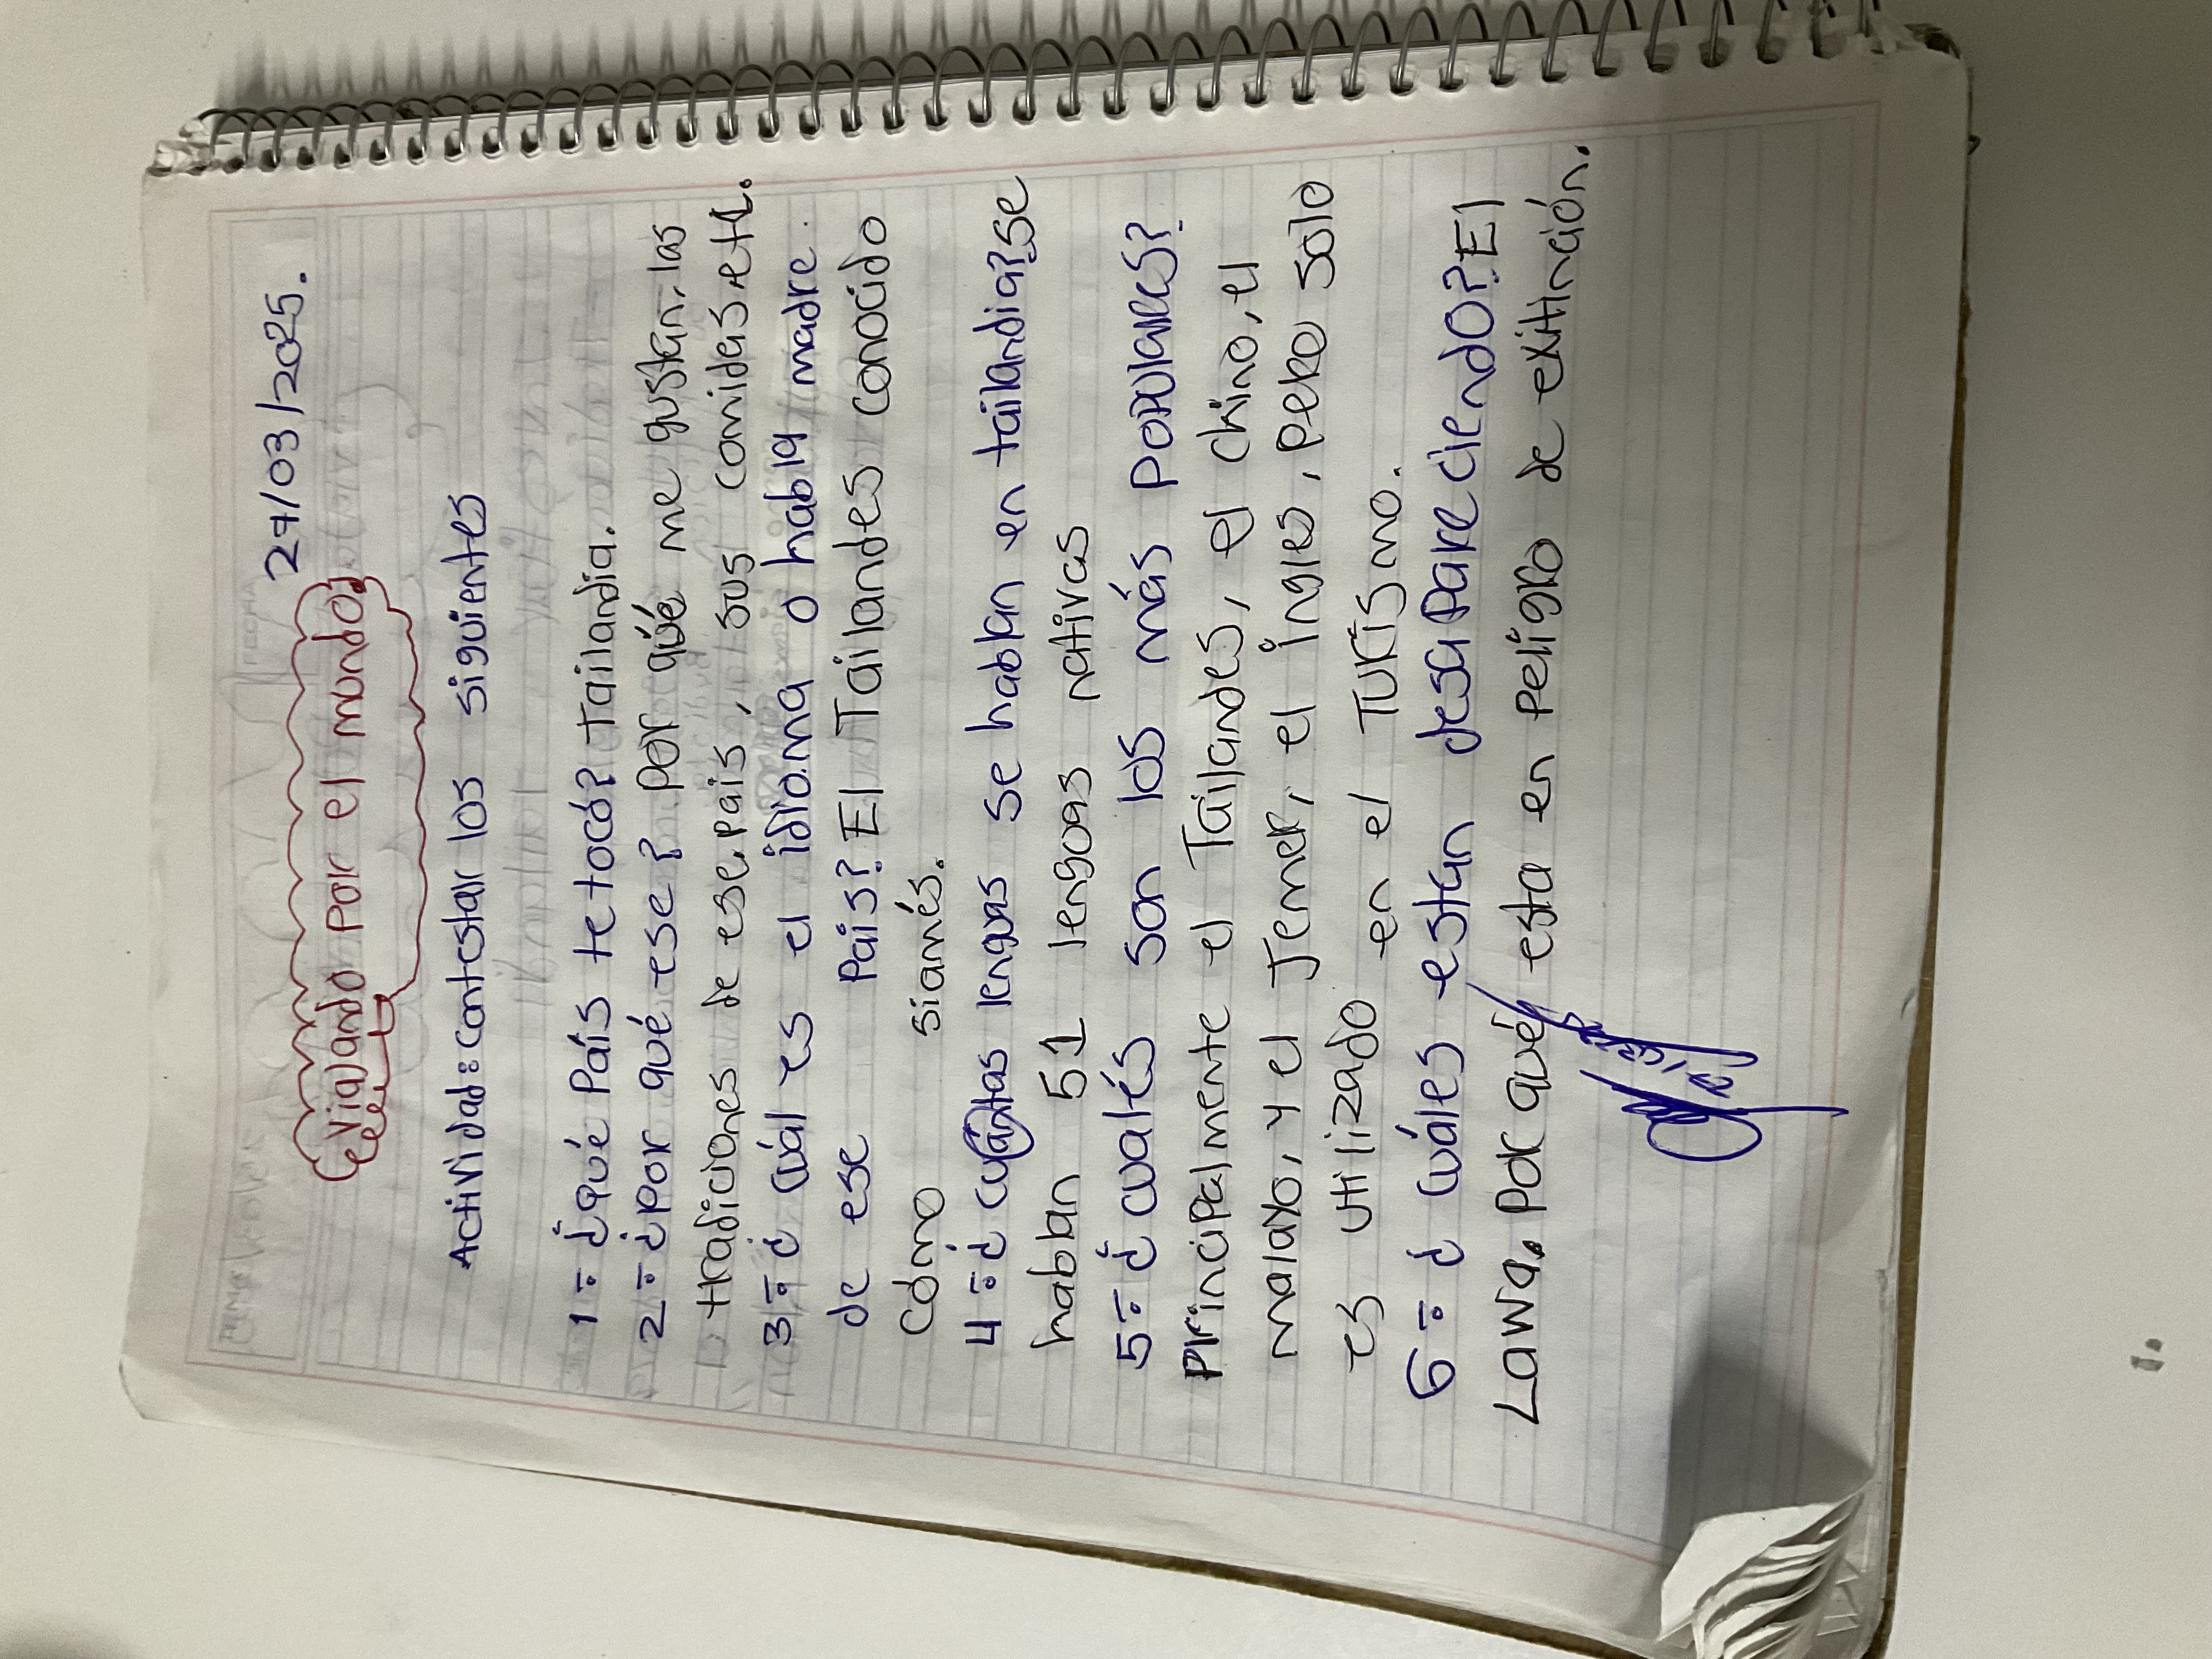 27/03/2025.
Viajando por el mundo.
Actividad: contestar los siguientes
1= ¿qué País te tocó? tailandia.
2= ¿por qué ese? por qué me gustan, las
tradiciones de ese, pais, sus comidas, etc.
3= ¿cuál es el idioma o habla madre
de ese Pais? El Tailandes conocido
como siamés.
4= ¿cuántas lenguas se hablan en tailandia? se
hablan 51 lenguas nativas
5= ¿cualés son los más populares?
principalmente el Tailandes, el chino, el
malayo, y el Jemer, el ingles, pero solo
es utilizado en el turismo.
6= ¿cuáles estan desapareciendo? El
Lawa. Por qué esta en peligro de exitinción.